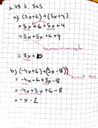 a) (3x+6)+(5x+4)
= 3x+6+5x+4
= 3x+5x+6+4
= 8x+10
b) (-4x+6)+(3x-8)
= -4x+6+3x-8
= -4x+3x+6-8
= -x-2